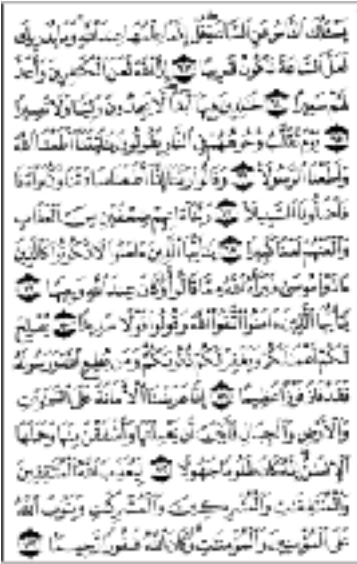 يسئلك الناس عن الساعة قل إنما علمها عند الله وما يدريك
لعل الساعة تكون قريبا ٦٣ إن الله لعن الكافرين وأعد
لهم سعيرا ٦٤ خالدين فيها أبدا لا يجدون وليا ولا نصيرا
٦٥ يوم تقلب وجوههم في النار يقولون يا ليتنا أطعنا الله
وأطعنا الرسولا ٦٦ وقالوا ربنا إنا أطعنا سادتنا وكبراءنا
فأضلونا السبيلا ٦٧ ربنا آتهم ضعفين من العذاب
والعنهم لعنا كبيرا ٦٨ يا أيها الذين آمنوا لا تكونوا كالذين
آذوا موسى فبرأه الله مما قالوا وكان عند الله وجيها ٦٩
يا أيها الذين آمنوا اتقوا الله وقولوا قولا سديدا ٧٠ يصلح
لكم أعمالكم ويغفر لكم ذنوبكم ومن يطع الله ورسوله
فقد فاز فوزا عظيما ٧١ إنا عرضنا الأمانة على السماوات
والأرض والجبال فأبين أن يحملنها وأشفقن منها وحملها
الإنسان إنه كان ظلوما جهولا ٧٢ ليعذب الله المنافقين
والمنافقات والمشركين والمشركات ويتوب الله
على المؤمنين والمؤمنات وكان الله غفورا رحيما ٧٣